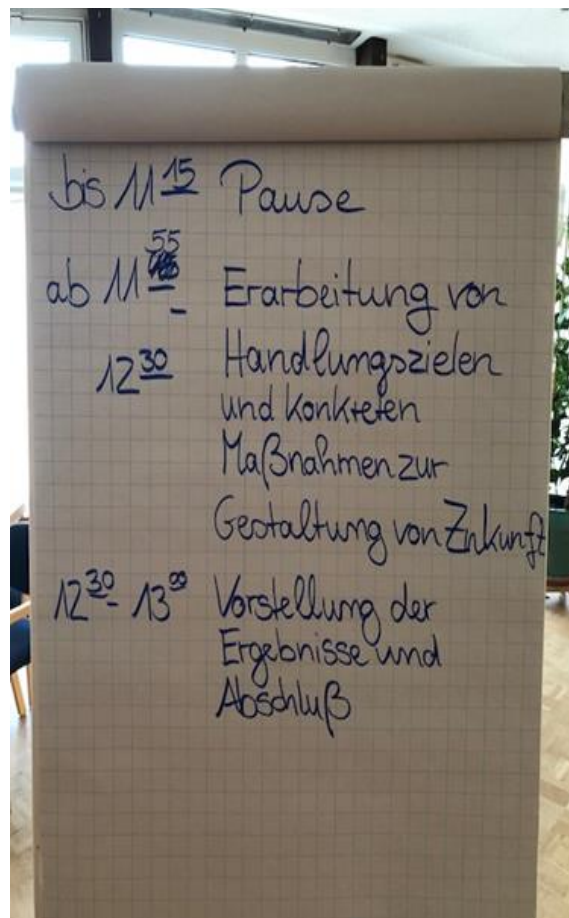 bis 11 15 Pause
55
ab 11 - Erarbeitung von
12 30 Handlungszielen
und konkreten
Maßnahmen zur
Gestaltung von Znkunft
12 30 - 13 00 Vorstellung der
Ergebnisse und
Abschluß